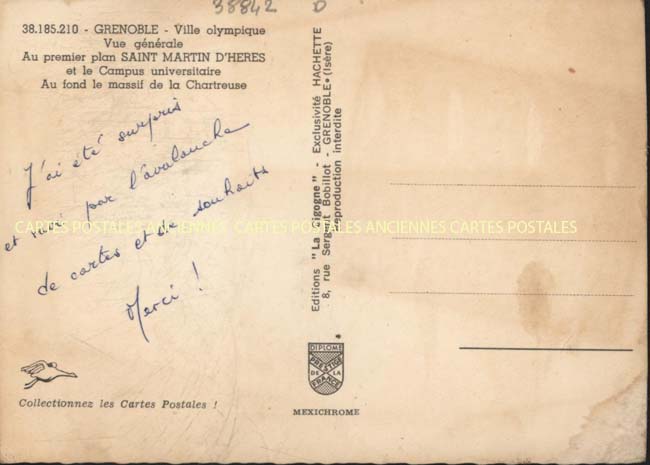 38842 D
38.185.210 - GRENOBLE - Ville olympique
Vue générale
Au premier plan SAINT MARTIN D'HERES
et le Campus universitaire
Au fond le massif de la Chartreuse
J'ai été surpris
et ravi par l'avalanche
de cartes et de souhaits
Merci !
CARTES POSTALES ANCIENNES CARTES POSTALES ANCIENNES CARTES POSTALES
Collectionnez les Cartes Postales !
Editions "La Cigogne" - Exclusivité HACHETTE
8, rue Sergent Bobillot - GRENOBLE • (Isère)
Reproduction interdite
DIPLOME
PRESTIGE
DE LA
FRANCE
MEXICHROME